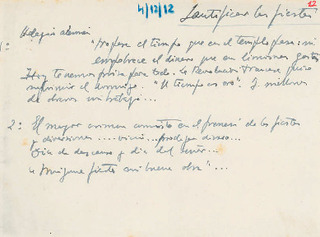 4/12/12
12
Santificar las fiestas
1: Adagio alemán
"No pierde el tiempo que en el templo pasa; ni
empobrece el dinero que en limosnas gasta
Hoy tenemos prisa para todo. La Revolución Francesa quiso
suprimir el domingo. "El tiempo es oro". 7 millones
de obreros sin trabajo...
2: El mayor crimen cometido en el de las fiestas
y diversiones .... vicio... dinero...
Día de descanso y día del Señor...
"Ninguna fiesta sin buena obra"...